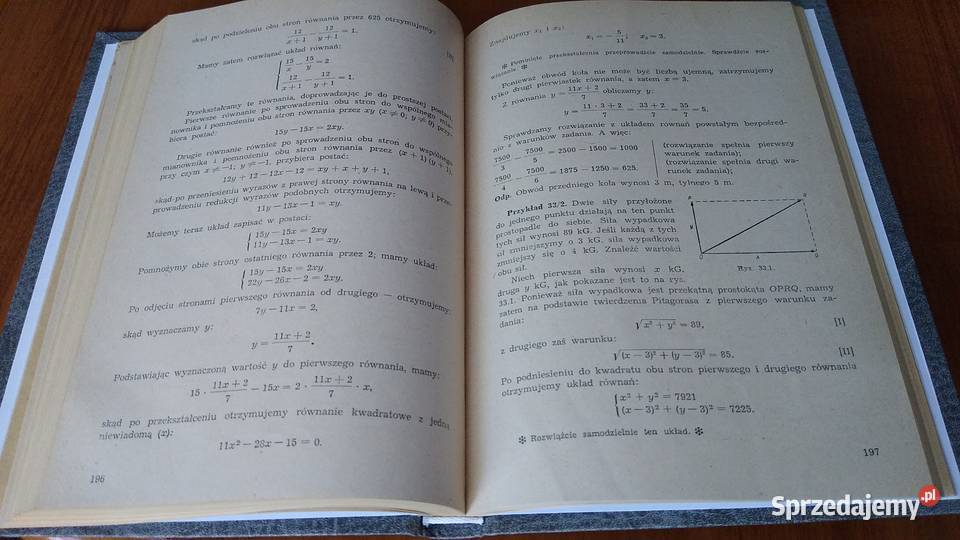 skąd po podzieleniu obu stron równania przez 625 otrzymujemy:
12/(x+1) − 12/(y+1) = 1.
Mamy zatem rozwiązać układ równań:
15/x − 15/y = 2
12/(x+1) − 12/(y+1) = 1.
Przekształcamy te równania, doprowadzając je do prostszej postaci.
Pierwsze równanie po sprowadzeniu obu stron do wspólnego mia-
nownika i pomnożeniu obu stron równania przez xy (x ≠ 0; y ≠ 0) przy-
biera postać:
15y − 15x = 2xy.
Drugie równanie również po sprowadzeniu obu stron do wspólnego
mianownika i pomnożeniu obu stron równania przez (x + 1) (y + 1),
przy czym x ≠ −1; y ≠ −1, przybiera postać:
12y + 12 − 12x − 12 = xy + x + y + 1,
skąd po przeniesieniu wyrazów z prawej strony równania na lewą i prze-
prowadzeniu redukcji wyrazów podobnych otrzymujemy:
11y − 13x − 1 = xy.
Możemy teraz układ zapisać w postaci:
15y − 15x = 2xy
11y − 13x − 1 = xy.
Pomnożymy obie strony ostatniego równania przez 2; mamy układ:
15y − 15x = 2xy
22y − 26x − 2 = 2xy.
Po odjęciu stronami pierwszego równania od drugiego — otrzymujemy
7y − 11x = 2,
skąd wyznaczamy y;
y = (11x + 2)/7.
Podstawiając wyznaczoną wartość y do pierwszego równania, mamy:
15 · (11x + 2)/7 − 15x = 2 · (11x + 2)/7 · x,
skąd po przekształceniu otrzymujemy równanie kwadratowe z jedną
niewiadomą (x):
11x² − 28x − 15 = 0.
196
Znajdujemy x₁ i x₂:
x₁ = − 5/11; x₂ = 3.
✻ Pominięte przekształcenia przeprowadźcie samodzielnie. Sprawdźcie roz-
wiązanie. ✻
Ponieważ obwód koła nie może być liczbą ujemną, zatrzymujemy
tylko drugi pierwiastek równania, a zatem x = 3.
Z równania y = (11x + 2)/7 obliczamy y:
y = (11 · 3 + 2)/7 = (33 + 2)/7 = 35/7 = 5.
Sprawdzamy rozwiązanie z układem równań powstałym bezpośred-
nio z warunków zadania. A więc:
7500/3 − 7500/5 = 2500 − 1500 = 1000 (rozwiązanie spełnia pierwszy
warunek zadania);
7500/4 − 7500/6 = 1875 − 1250 = 625. (rozwiązanie spełnia drugi wa-
runek zadania);
Odp. Obwód przedniego koła wynosi 3 m, tylnego 5 m.
Przykład 33/2. Dwie siły przyłożone
do jednego punktu działają na ten punkt
prostopadle do siebie. Siła wypadkowa
tych sił wynosi 89 kG. Jeśli każdą z tych
sił zmniejszymy o 3 kG, siła wypadkowa
zmniejszy się o 4 kG. Znaleźć wartości
obu sił.
Rys. 33.1.
Niech pierwsza siła wynosi x kG,
druga y kG, jak pokazane jest to na rys.
33.1. Ponieważ siła wypadkowa jest przekątną prostokąta OPRQ, mamy
zatem na podstawie twierdzenia Pitagorasa z pierwszego warunku za-
dania:
√(x² + y²) = 89, [I]
z drugiego zaś warunku:
√((x − 3)² + (y − 3)²) = 85. [II]
Po podniesieniu do kwadratu obu stron pierwszego i drugiego równania
otrzymujemy układ równań:
x² + y² = 7921
(x − 3)² + (y − 3)² = 7225.
✻ Rozwiążcie samodzielnie ten układ. ✻
197
Sprzedajemy.pl